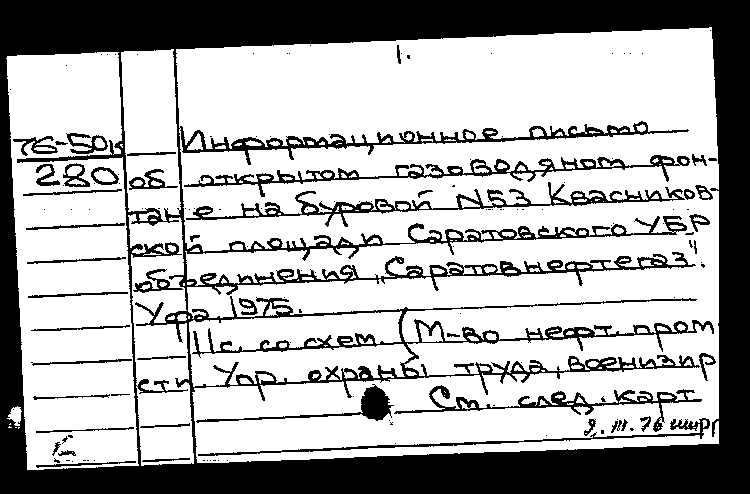 1.
76-50к Информационное письмо
280 об открытом газоводяном фон-
тане на буровой N53 Квасников-
ской площади Саратовского УБР
объединения „Саратовнефтегаз".
Уфа, 1975.
11с. со схем. (М-во нефт. пром
сти. Упр. охраны труда, военизир
См. след. карт
9.III.76